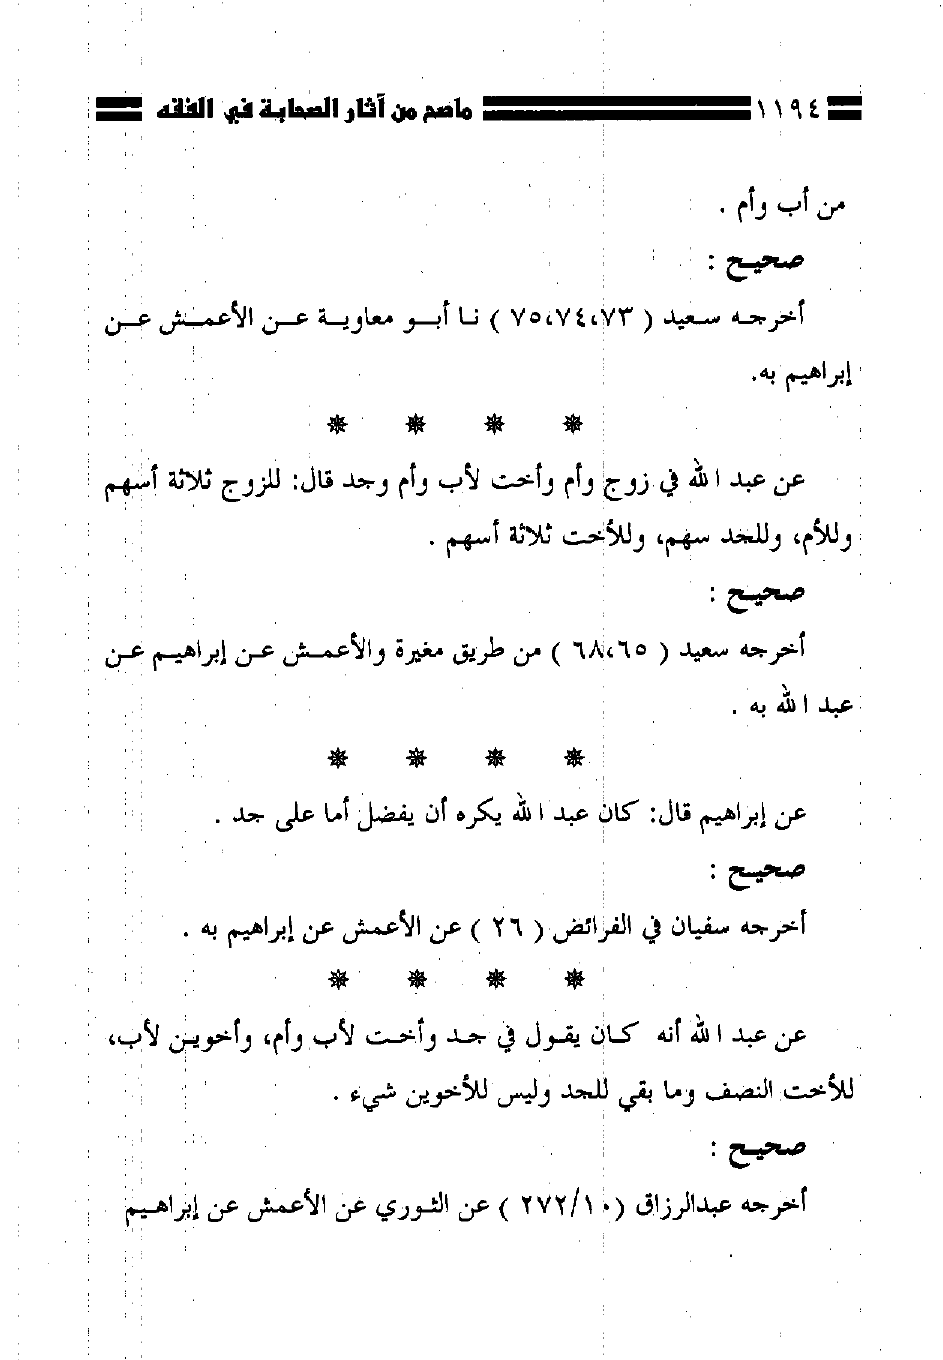 ١١٩٤ ماصح من آثار الصحابة في الفقه
من أب وأم .
صحيح :
أخرجه سعيد ( ٧٣،٧٤،٧٥ ) نا أبو معاوية عن الأعمش عن
إبراهيم به.
عن عبد الله في زوج وأم وأخت لأب وأم وجد قال: للزوج ثلاثة أسهم
وللأم، وللجد سهم، وللأخت ثلاثة أسهم .
صحيح :
أخرجه سعيد ( ٦٨،٦٥ ) من طريق مغيرة والأعمش عن إبراهيم عن
عبد الله به .
عن إبراهيم قال: كان عبد الله يكره أن يفضل أما على جد .
صحيح :
أخرجه سفيان في الفرائض ( ٢٦ ) عن الأعمش عن إبراهيم به .
عن عبد الله أنه كان يقول في جد وأخت لأب وأم، وأخوين لأب،
للأخت النصف وما بقي للجد وليس للأخوين شيء .
صحيح :
أخرجه عبدالرزاق (٢٧٢/١٠ ) عن الثوري عن الأعمش عن إبراهيم